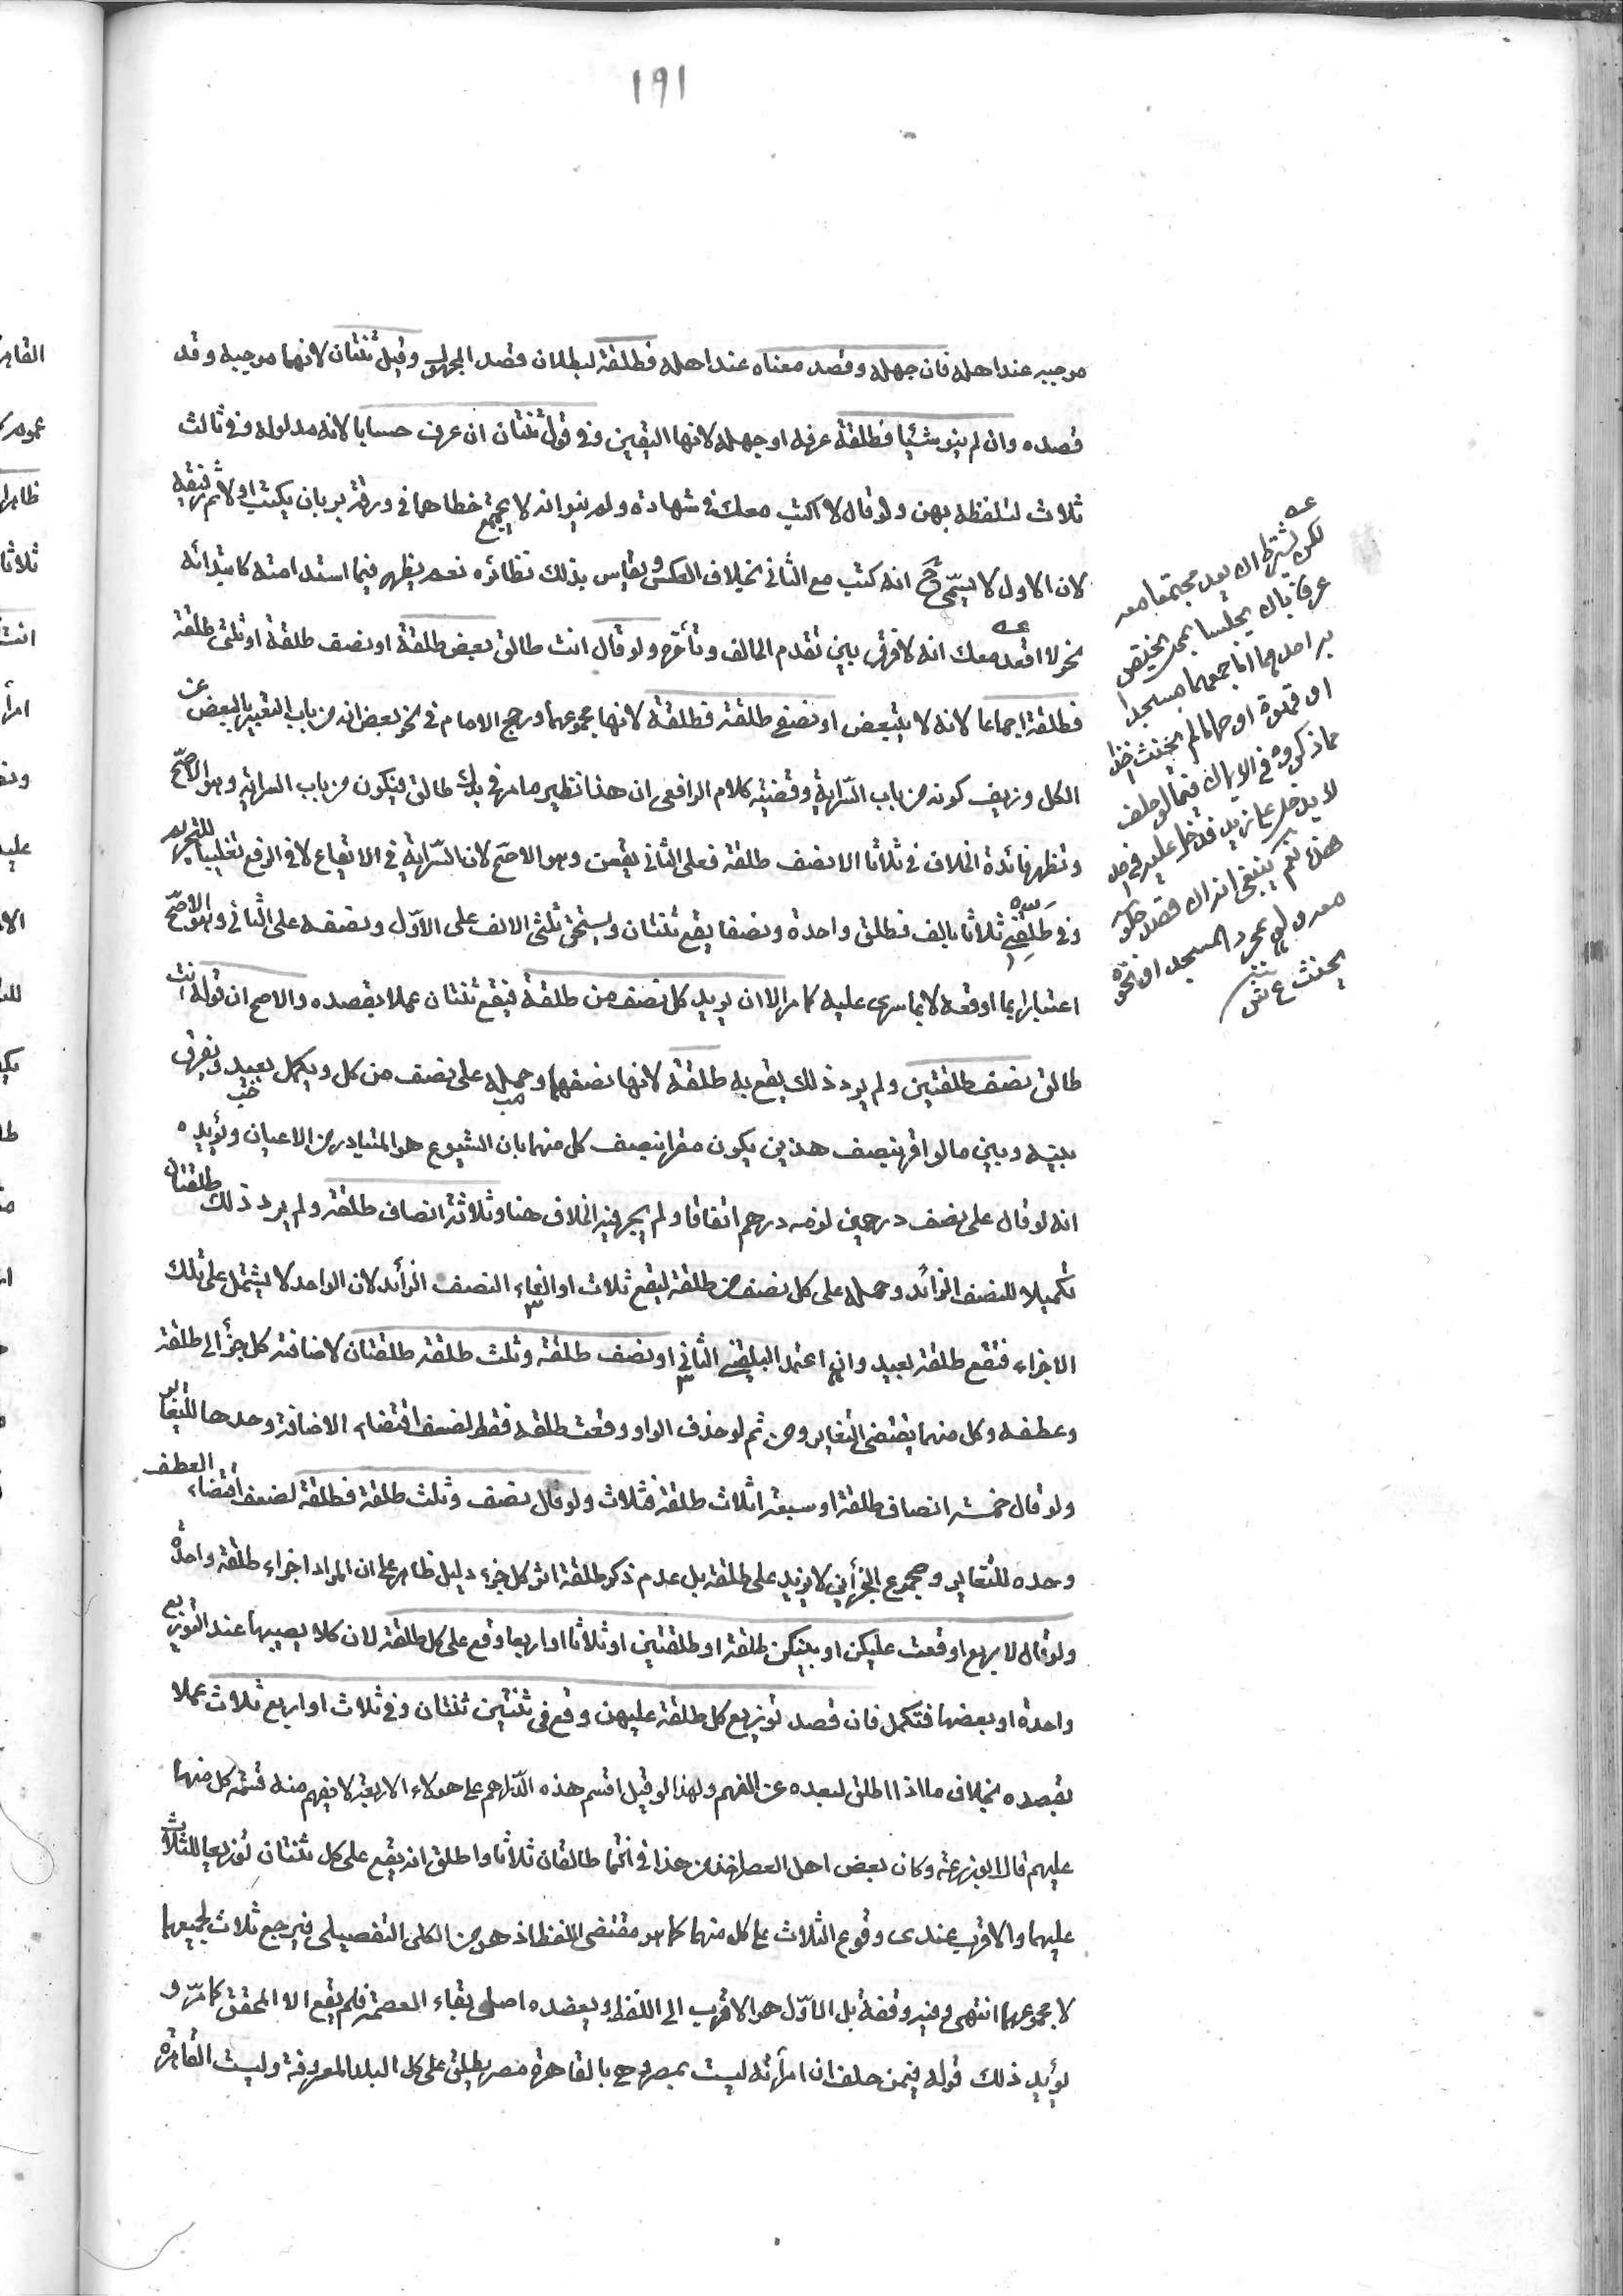 ١٩١
موجبه عند اهله فان جهله وقصد معناه عند اهله فطلقة لبطلان قصد المجهول وقيل ثنتان لانهما موجبه وقد
قصده وان لم ينو شيئا فطلقة عرفه او جهله لانها اليقين وفي قول ثنتان ان عرف حسابا لانه مدلوله وفي ثالث
ثلاث لتلفظه بهن ولو قال لا اكتب معك في شهادة ولم ينو انه لا يجتمع خطاهما في ورقة بر بان يكتب اولا ثم رفيقه
لان الاول لا يسمى ح انه كتب مع الثاني بخلاف العكس ويقاس بذلك نظائره نعم يظهر فيما استدامته كابتدائه
نحو لا اقعد معك انه لا فرق بين تقدم الحالف وتأخره ولو قال انت طالق بعض طلقة او نصف طلقة او ثلثى طلقة
فطلقة اجماعا لانه لا يتبعض او نصفي طلقة فطلقة لانها مجموعهما ورجح الامام في نحو بعض انه من باب التعبير بالبعض عن
الكل وزيف كونه من باب السّراية وقضية كلام الرافعي ان هذا نظير ما مر في يدك طالق فيكون من باب السراية وهو الاصحّ
وتظهر فائدة الخلاف في ثلاثا الا نصف طلقة فعلى الثاني يقعن وهو الاصح لان السّراية في الايقاع لا في الرفع تغليبا للتحريم
وفي طلقني ثلاثا بالف فطلق واحدة ونصفا يقع ثنتان ويستحق ثلثى الالف على الاوّل ونصفه على الثاني وهو الاصحّ
اعتبارا بما اوقعه لا بما سرى عليه كما مر الا ان يريد كل نصف من طلقة فيقع ثنتان عملا بقصده والاصح ان قوله انت
طالق نصف طلقتين ولم يرد ذلك يقع به طلقة لانها نصفهما وحمله على نصف من كل ويكمل بعيد ويفرق
بينه وبين ما لو اقر بنصف هذين يكون مقرا بنصف كل منهما بان الشيوع هو المتبادر من الاعيان ويؤيده
انه لو قال علي نصف درهمين لزمه درهم اتفاقا ولم يجر فيه الخلاف هنا وثلاثة انصاف طلقة ولم يرد ذلك طلقتان
تكميلا للنصف الزائد وحمله على كل نصف من طلقة ليقع ثلاث او الغاء النصف الزائد لان الواحد لا يشتمل على تلك
الاجزاء فتقع طلقة بعيد وان اعتمد البلقيني الثاني او نصف طلقة وثلث طلقة طلقتان لاضافة كل جزأ الى طلقة
وعطفه وكل منهما يقتضى التغاير ومن ثم لو حذف الواو وقعت طلقة فقط لضعف اقتضاء الاضافة وحدها للتغاير
ولو قال خمسة انصاف طلقة او سبعة اثلاث طلقة فثلاث ولو قال نصف وثلث طلقة فطلقة لضعف اقتضاء العطف
وحده للتغاير ومجموع الجزأين لا يزيد على طلقة بل عدم ذكر طلقة اثر كل جزء دليل ظاهر على ان المراد اجزاء طلقة واحدة
ولو قال لاربع اوقعت عليكن او بينكن طلقة او طلقتين او ثلاثا او اربعا وقع على كل طلقة لان كلا يصيبها عند التوزيع
واحدة او بعضها فتكمل فان قصد توزيع كل طلقة عليهن وقع في ثنتين ثنتان وفي ثلاث او اربع ثلاث عملا
بقصده بخلاف ما اذا اطلق لبعده عن الفهم ولهذا لو قيل اقسم هذه الدّراهم على هولاء الاربعة لا يفهم منه قسمة كل منها
عليهم قال ابو زرعة وكان بعض اهل العصر اخذ من هذا في انتما طالقان ثلاثا واطلق انه يقع على كل ثنتان توزيعا للثلاث
عليهما والاقرب عندى وقوع الثلاث على كل منهما كما هو مقتضى اللفظ اذ هو من الكلى التفصيلى فيرجع ثلاث لجميعهما
لا مجموعهما انتهى وفيه وقفة بل الاوّل هو الاقرب الى اللفظ ويعضده اصل بقاء العصمة فلم يقع الا المحقق كما مرّ و
يؤيد ذلك قوله فيمن حلف ان امرأته ليست بمصر وهى بالقاهرة مصر يطلق على كل البلد المعروفة وليست القاهرة
لكن يشترط ان يعد مجتمعا معه
عرفا بان يجلسا بمحل يختص
به احدهما اما لو جمعهما مسجد
او قهوة او حمام لم يحنث اخذا
مما ذكروه في الايمان فيما لو حلف
لا يدخل على زيد فدخل عليه في احد
هذه نعم ينبغي انه ان قصد جلوسه
معه ولو بمجرد المسجد او نحوه
يحنث ع ش